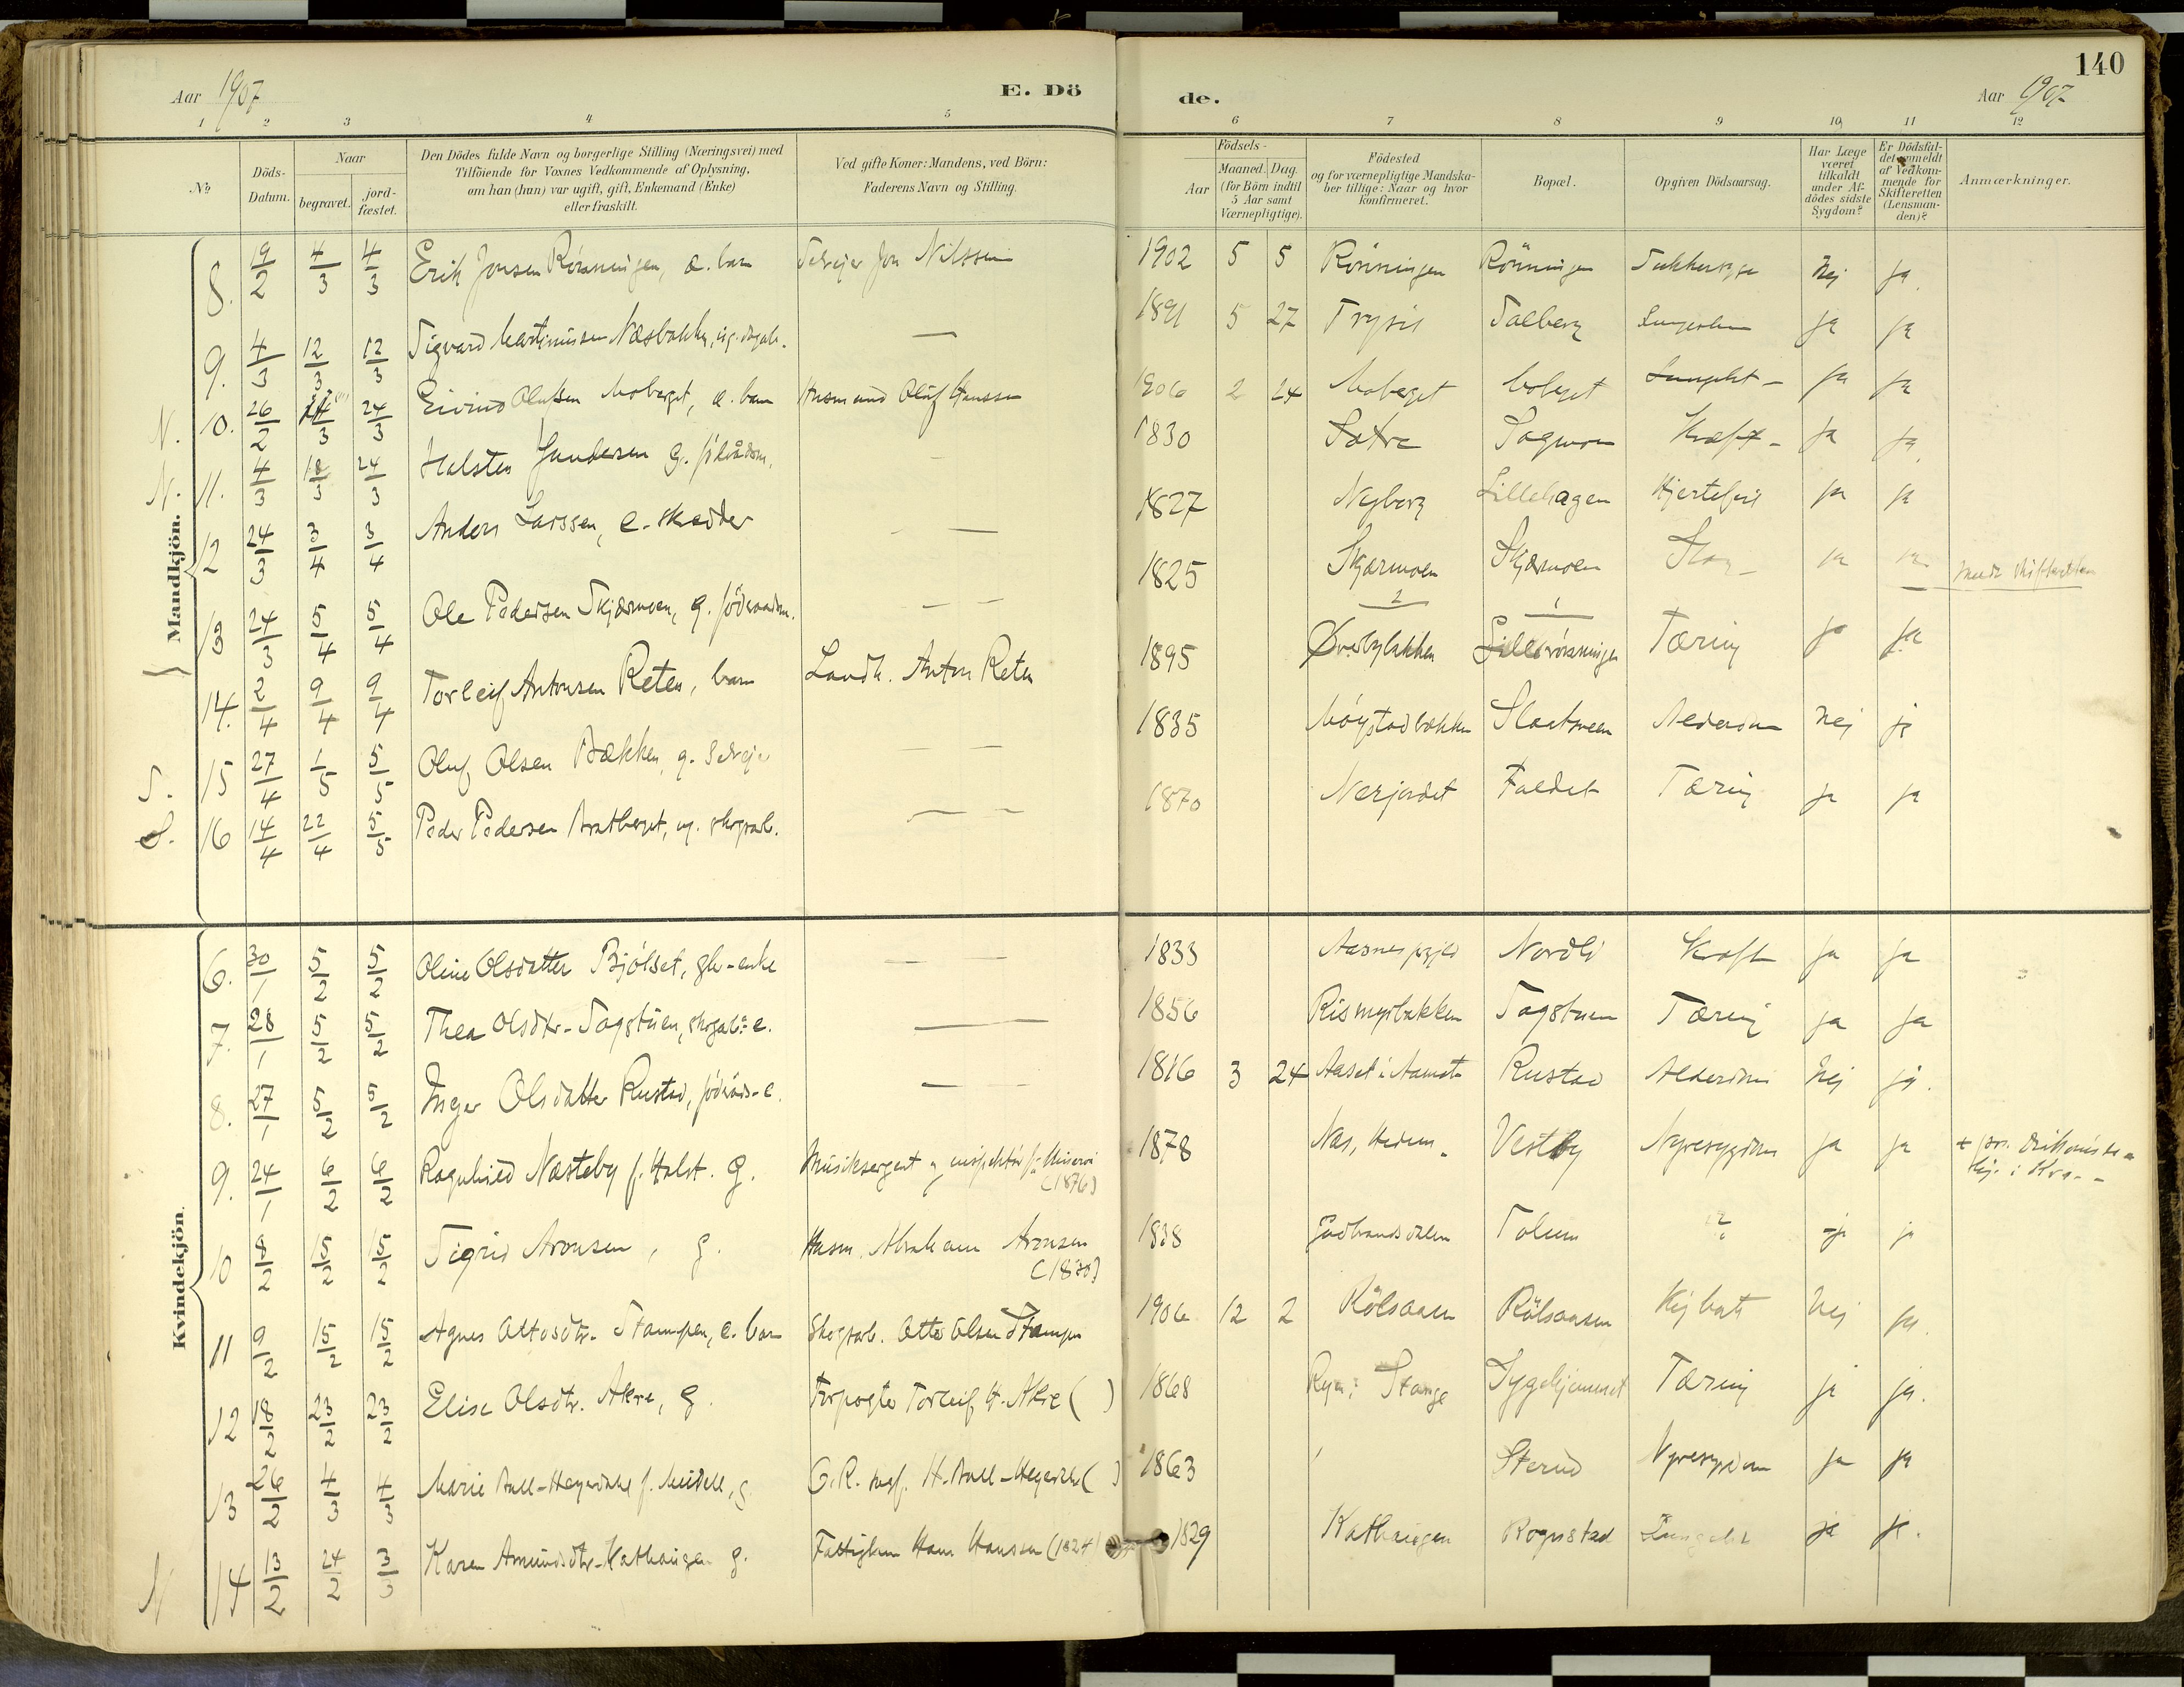 140
Aar 1907 E. Dö de. Aar 1907
1 2 3 4 5 6 7 8 9 10 11 12
No
Döds-Datum.
Naar
begravet.
jord-fæstet.
Den Dödes fulde Navn og borgerlige Stilling (Næringsvei) med
Tilföiende for Voxnes Vedkommende af Oplysning,
om han (hun) var ugift, gift, Enkemand (Enke)
eller fraskilt.
Ved gifte Koner: Mandens, ved Börn:
Faderens Navn og Stilling.
Födsels-
Aar
Maaned. Dag.
(for Börn indtil
5 Aar samt
Værnepligtige).
Födested
og for værnepligtige Mandska-
ber tillige: Naar og hvor
konfirmeret.
Bopæl.
Opgiven Dödsaarsag.
Har Læge
været
tilkaldt
under Af-
dödes sidste
Sygdom?
Er Dödsfal-
det anmeldt
af Vedkom-
mende for
Skifteretten
(Lensman-
den)?
Anmærkninger.
Mandkjön.
8. 19/2 4/3 4/3 Erik Jonsen Rønningen, e. barn Selvejer Jon Nilssen 1902 5 5 Rønningen Rönningen Sukkersyge Nej ja.
9. 4/3 12/3 12/3 Sigvard Martinussen Næsbakken, ug. — 1891 5 27 Trysil Solberg ja ja
N. 10. 26/2 24/3 Eivind Olufsen Moberget, e. barn Husmand Oluf Hanssen 1906 2 24 Moberget Moberget ja ja
N. 11. 4/3 18/3 24/3 Halsten g. 1830 Sætre Kræft - ja ja.
12 24/3 3/4 3/4 Anders Larssen, e. skrædder — 1827 Nyborg Lillehagen Hjertefeil ja ja
13 24/3 5/4 5/4 Ole Pedersen Skjærmoen, g. föderaadsm. — — 1825 Skjærmoen Skjærmoen ja
14. 2/4 9/4 9/4 Torleif Antonsen Reten, barn Landh. Anton Reten 1895 Øvrebybakken Lillerønningen Tæring ja ja
S. 15 27/4 1/5 5/5 Oluf Olsen Bækken, g. Selvejer — — 1835 Slaatmoen Alderdom Nej ja
S. 16 14/4 22/4 5/5 Peder Pedersen Bratberget, ug. skogsarb. — — 1870 Nerjordet Faldet Tæring ja ja
Kvindekjön.
6. 30/1 5/2 5/2 Oline Olsdatter Bjölset, — — 1833 Nordli Kræft ja ja
7. 28/1 5/2 5/2 Thea Olsdtr. Sagstuen, skogarb. e. — 1856 Rismyrbakken Sagstuen Tæring ja ja
8. 27/1 5/2 5/2 Inger Olsdatter Rustad, föderåds-e. — — 1816 3 24 Aaset i Aamot Rustad Alderdom Nej ja.
9. 24/1 6/2 6/2 Ragnhild Næsteby f. Holst. g. Musiksergent og (1876) 1878 Næs, Hedem. Vestby Nyresygdom ja ja
10 8/2 15/2 15/2 Sigrid Aronsen, g. Husm. Abraham Aronsen (1830) 1838 Gudbrandsdalen Tolum ? ja ja
11 9/2 15/2 15/2 Agnes Ottosdtr. Stampen, e. barn Skogsarb. Otto Olsen Stampen 1906 12 2 Rölsaasen Rölsaasen Kighoste Nej ja.
12 18/2 23/2 23/2 Elise Olsdtr. Akre, g. Forpagter Torleif H. Akre ( ) 1868 i Stange Sygehjemmet Tæring ja ja.
13 26/2 4/3 4/3 Marie Bull-Heyerdahl f. Meidell, g. O.R. sagf. H. Bull-Heyerdahl ( ) 1863 Sterud Nyresygdom ja ja
N 14 13/2 24/2 3/3 Karen Amundsdtr. Kathaugen g. Fattiglem Hans Hanssen (1824) 1829 Kathaugen Rognstad ja ja.